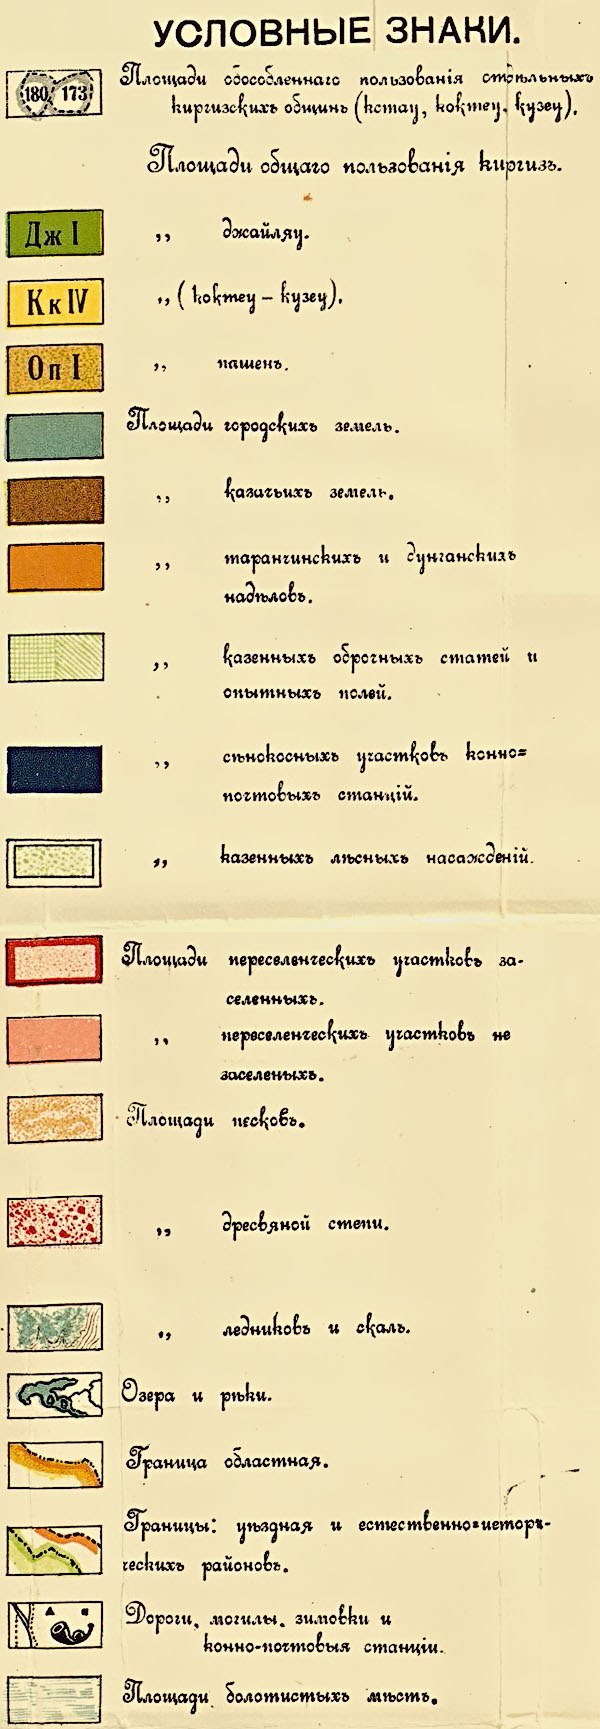 УСЛОВНЫЕ ЗНАКИ.
180 173
Площади обособленнаго пользованія отдѣльныхъ
киргизскихъ общинъ (кстау, коктеу, кузеу).
Площади общаго пользованія киргизъ.
Дж I ,, джайляу.
Кк IV ,, (коктеу – кузеу).
Оп I ,, пашенъ.
Площади городскихъ земель.
,, казачьихъ земель.
,, таранчинскихъ и дунганскихъ
надѣловъ.
,, казенныхъ оброчныхъ статей и
опытныхъ полей.
,, сѣнокосныхъ участковъ конно=
почтовыхъ станцій.
,, казенныхъ лѣсныхъ насажденій.
Площади переселенческихъ участковъ за-
селенныхъ.
,, переселенческихъ участковъ не
заселеныхъ.
Площади песковъ.
,, дресвяной степи.
,, ледниковъ и скалъ.
Озера и рѣки.
Граница областная.
Границы: уѣздная и естественно=истори-
ческихъ районовъ.
Дороги, могилы, зимовки и
конно-почтовыя станціи.
Площади болотистыхъ мѣстъ.